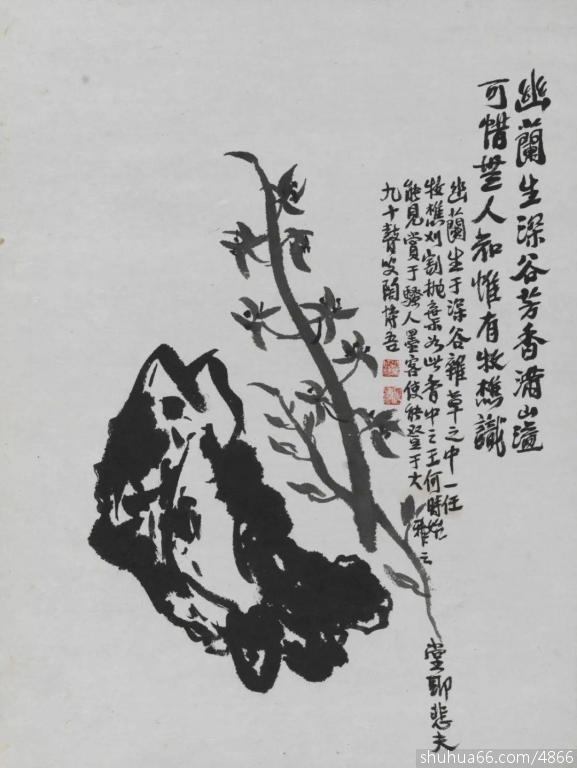 幽蘭生深谷芳香滿山溢
可惜無人知惟有牧樵識
幽蘭生于深谷雜草之中一任
牧樵刈割抛棄如此香中之王何時始
能見賞于騷人墨客使能登于大雅
堂耶悲夫
九十瞽叟陶博吾
shuhua66.com/4866